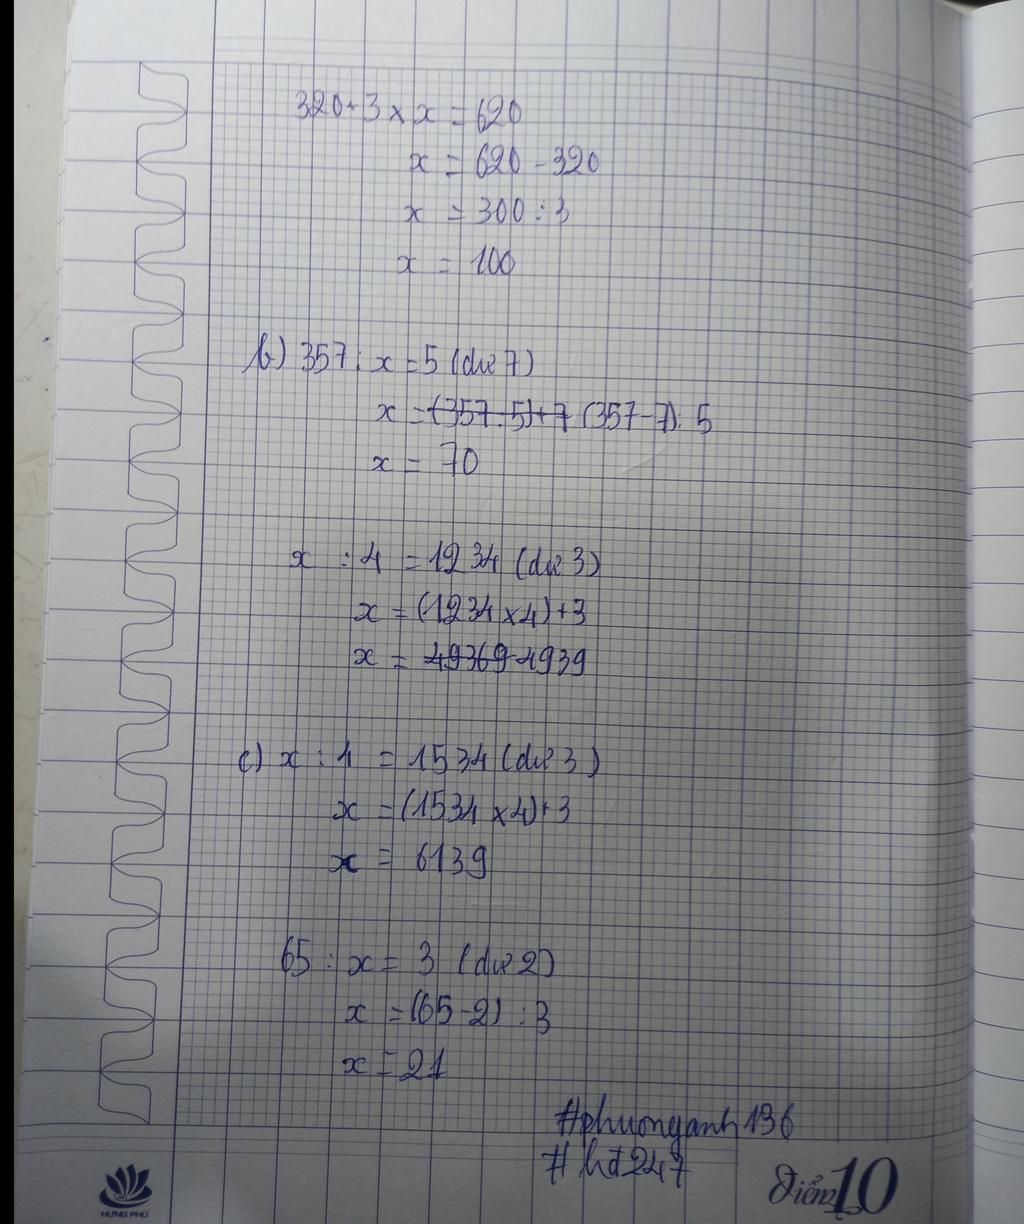 320+3 x x = 620
x = 620 - 320
x = 300 : 3
x = 100
b) 357 : x = 5 (dư 7)
x = (357:5)+7 (357-7): 5
x = 70
x : 4 = 1234 (dư 3)
x = (1234 x 4) + 3
x = 49369 4939
c) x : 4 = 1534 (dư 3)
x = (1534 x 4) + 3
x = 6139
65 : x = 3 (dư 2)
x = (65-2) : 3
x = 21
#phuonganh136
#hđ247
HƯNG PHÚ
Điểm 10